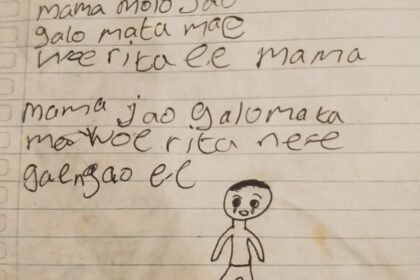 mama molo jao
galo mata mae
woe rita ee mama
mama jao galomata
woe rita neee
gaengao e-e